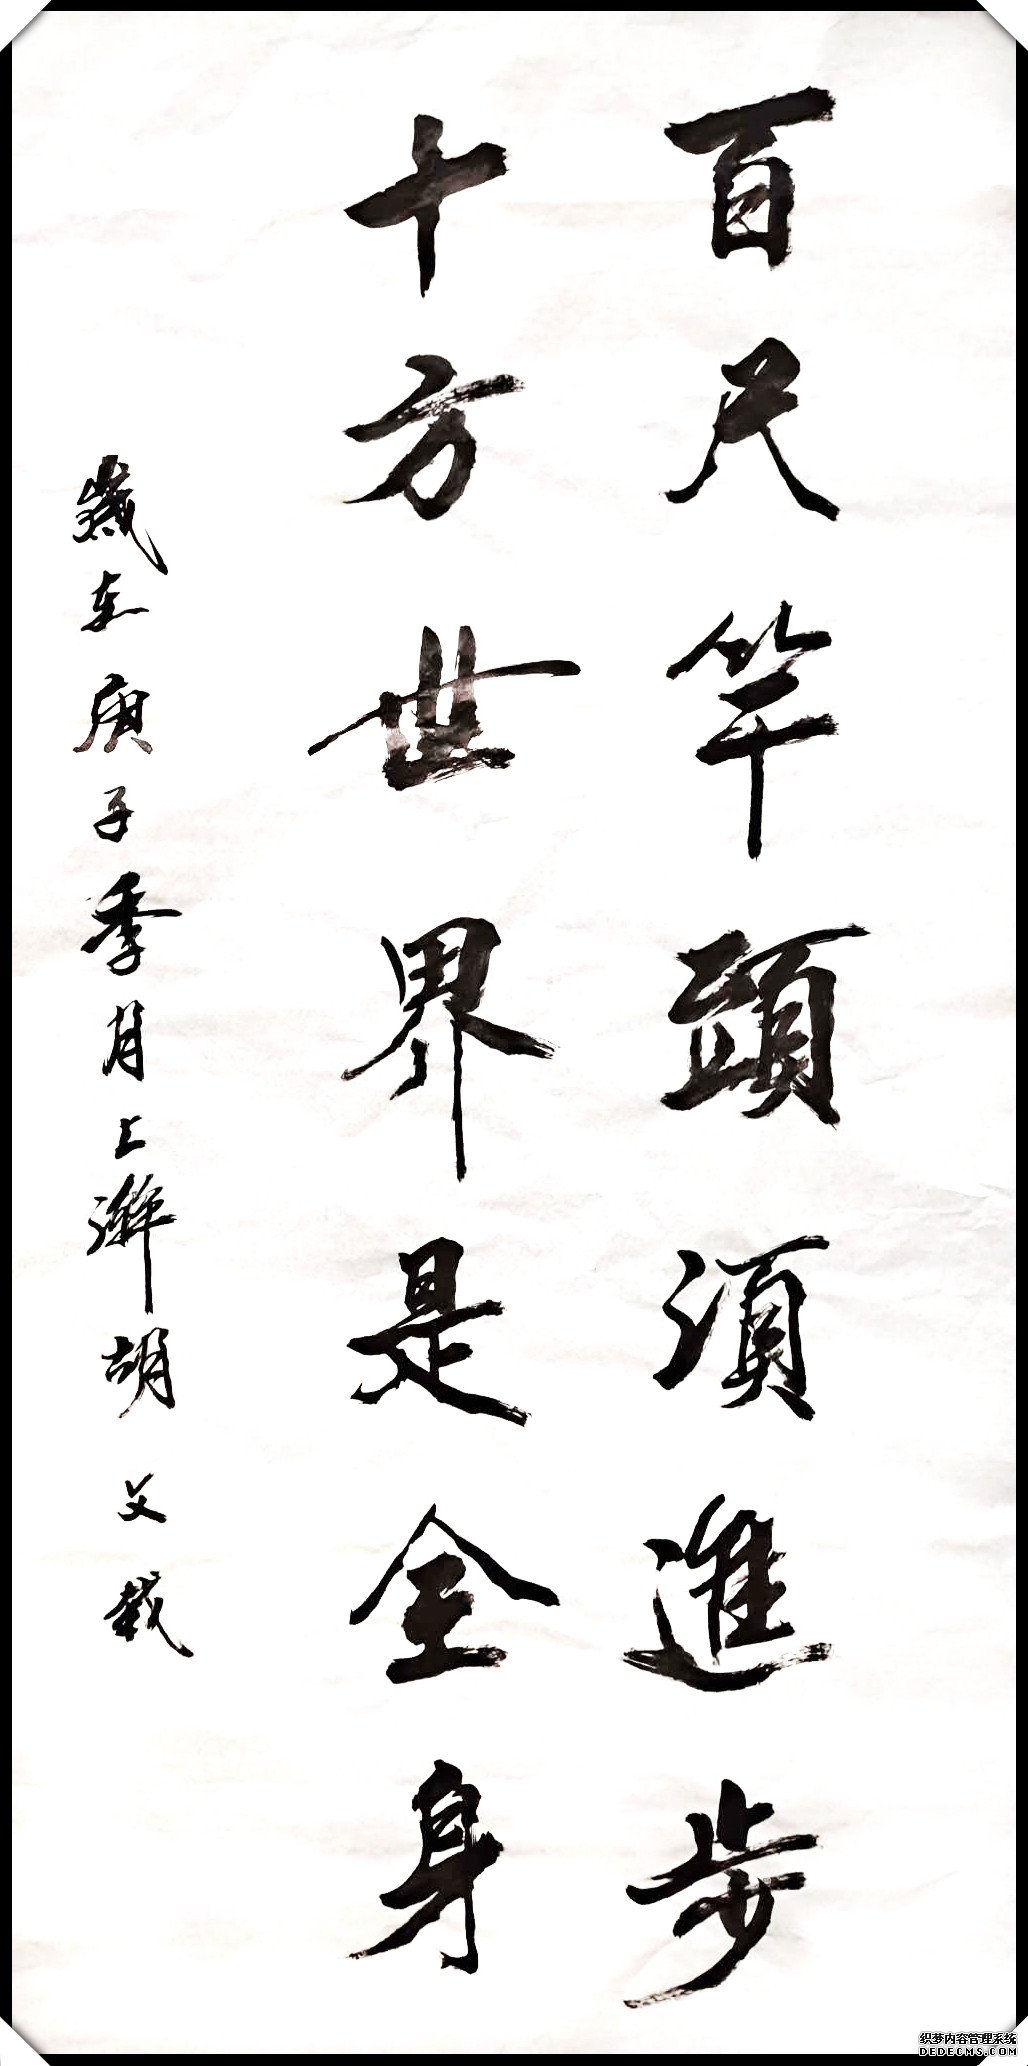 百尺竿頭須進步
十方世界是全身
歲在庚子季月上澣胡文載
织梦内容管理系统
DEDECMS.COM